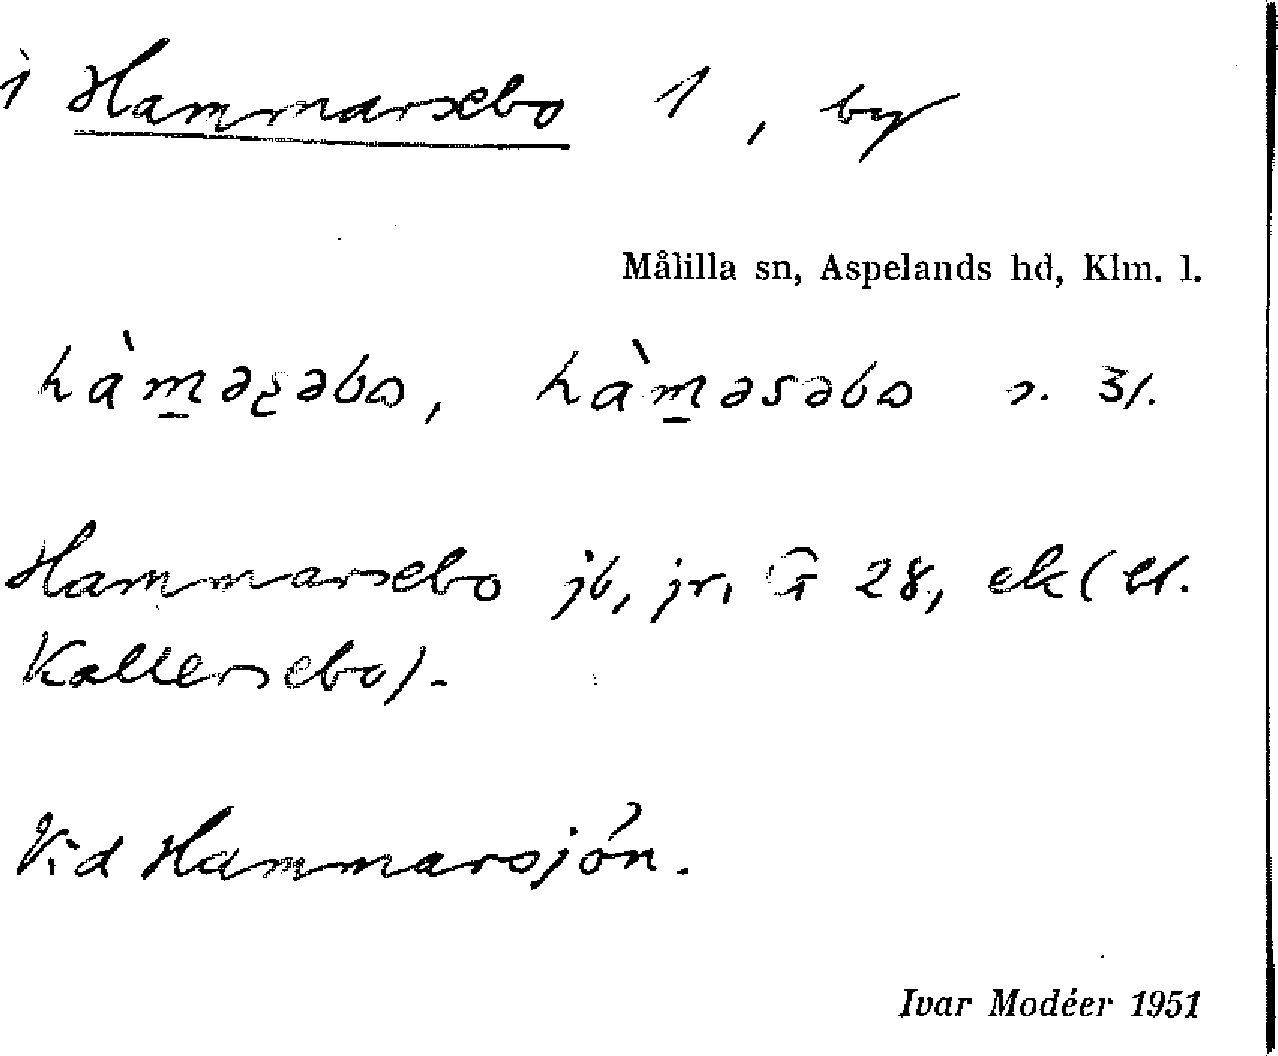 i Hammarsebo 1, by
Målilla sn, Aspelands hd, Klm. l.
hàm̱əʂəbɷ, hàm̱əsəbɷ s. 31.
Hammarsebo jb, jr, G 28, ek (el.
Kallersebo).
Vid Hammarsjön.
Ivar Modéer 1951